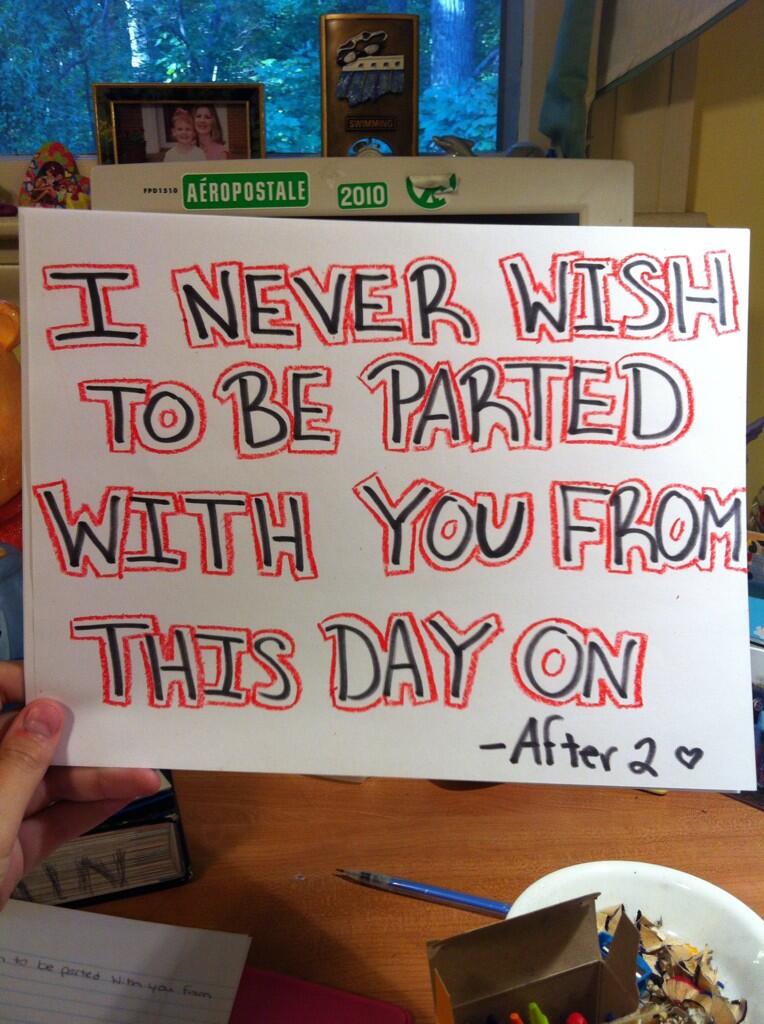 SWIMMING
FPD1510 AÉROPOSTALE 2010
I NEVER WISH
TO BE PARTED
WITH YOU FROM
THIS DAY ON
-After 2 ♡
to be parted with you from